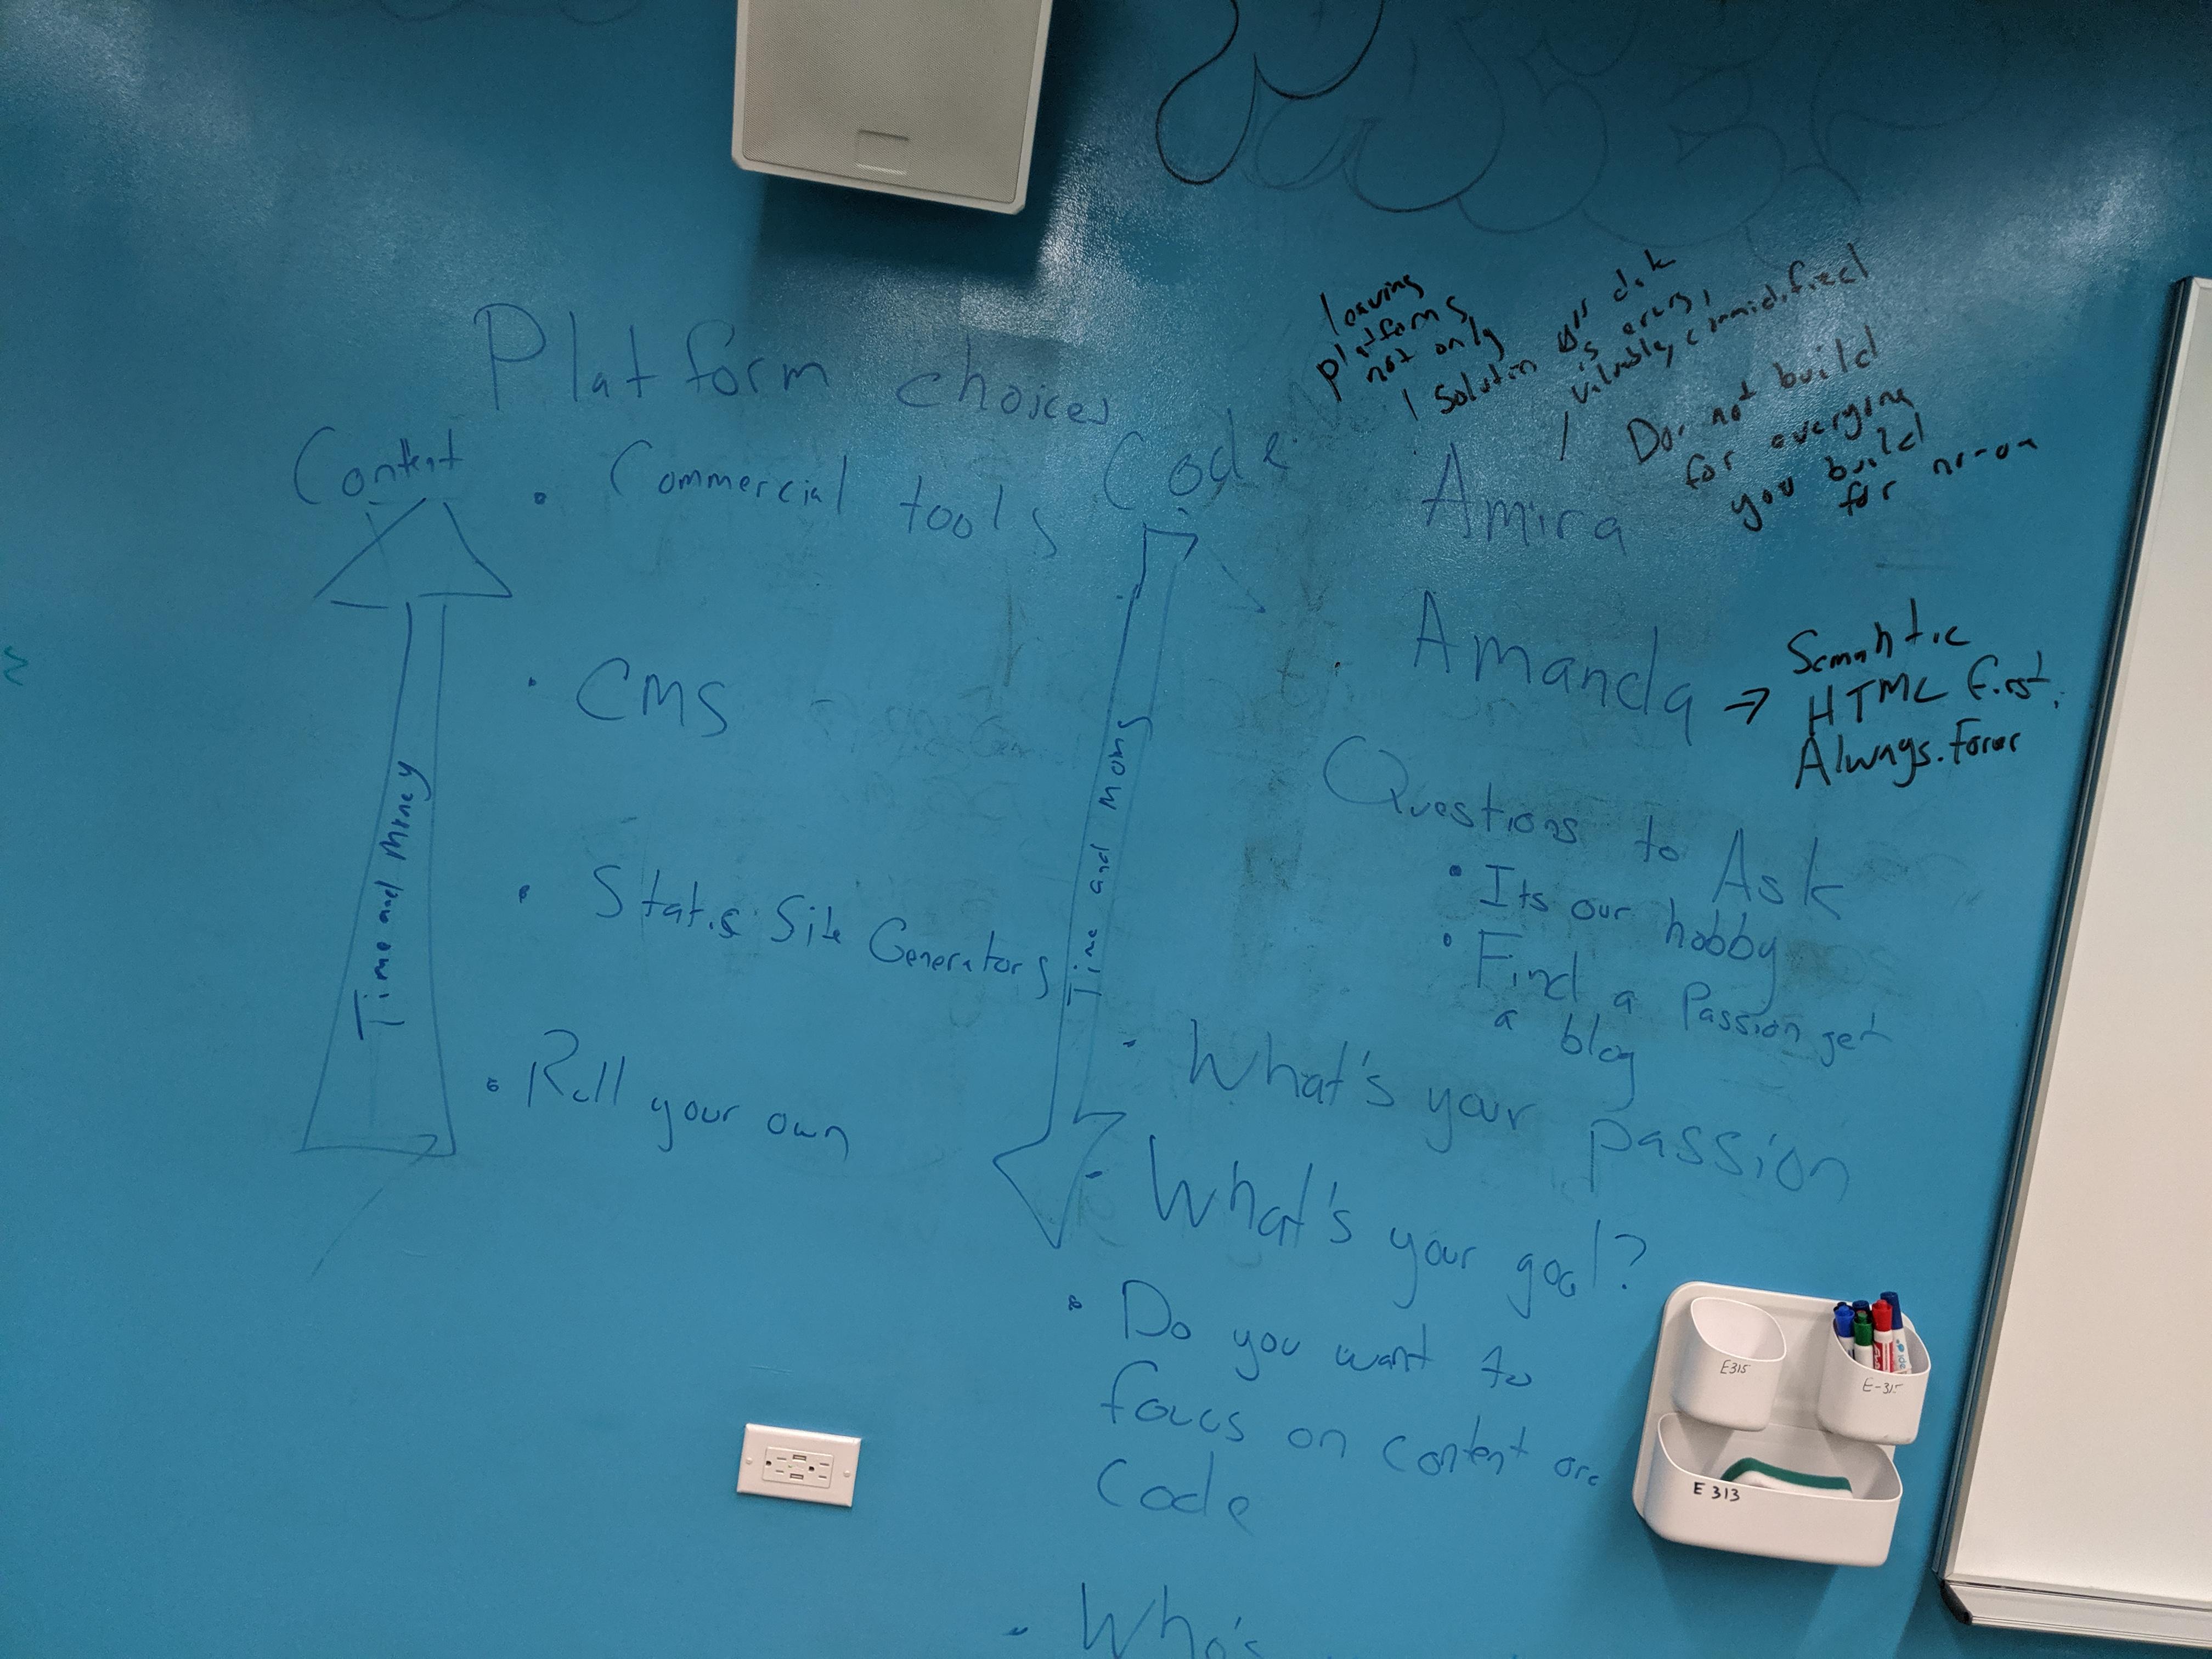 Platform choices
Content
Code
• Commercial tools
• CMS
• Static Site Generators
• Roll your own
Time and Money
Time and Mony
leaving
platforms
not only
solution
is
Do not build
for everyone
you build
for no-on
Amira
Amanda → Semantic
HTML first.
Always. Forever
Questions to Ask
• Its our hobby
• Find a Passion get
a blog
• What's your passion
• What's your goal?
• Do you want to
focus on content ore
Code
• Who's
E315
E-315
E 313